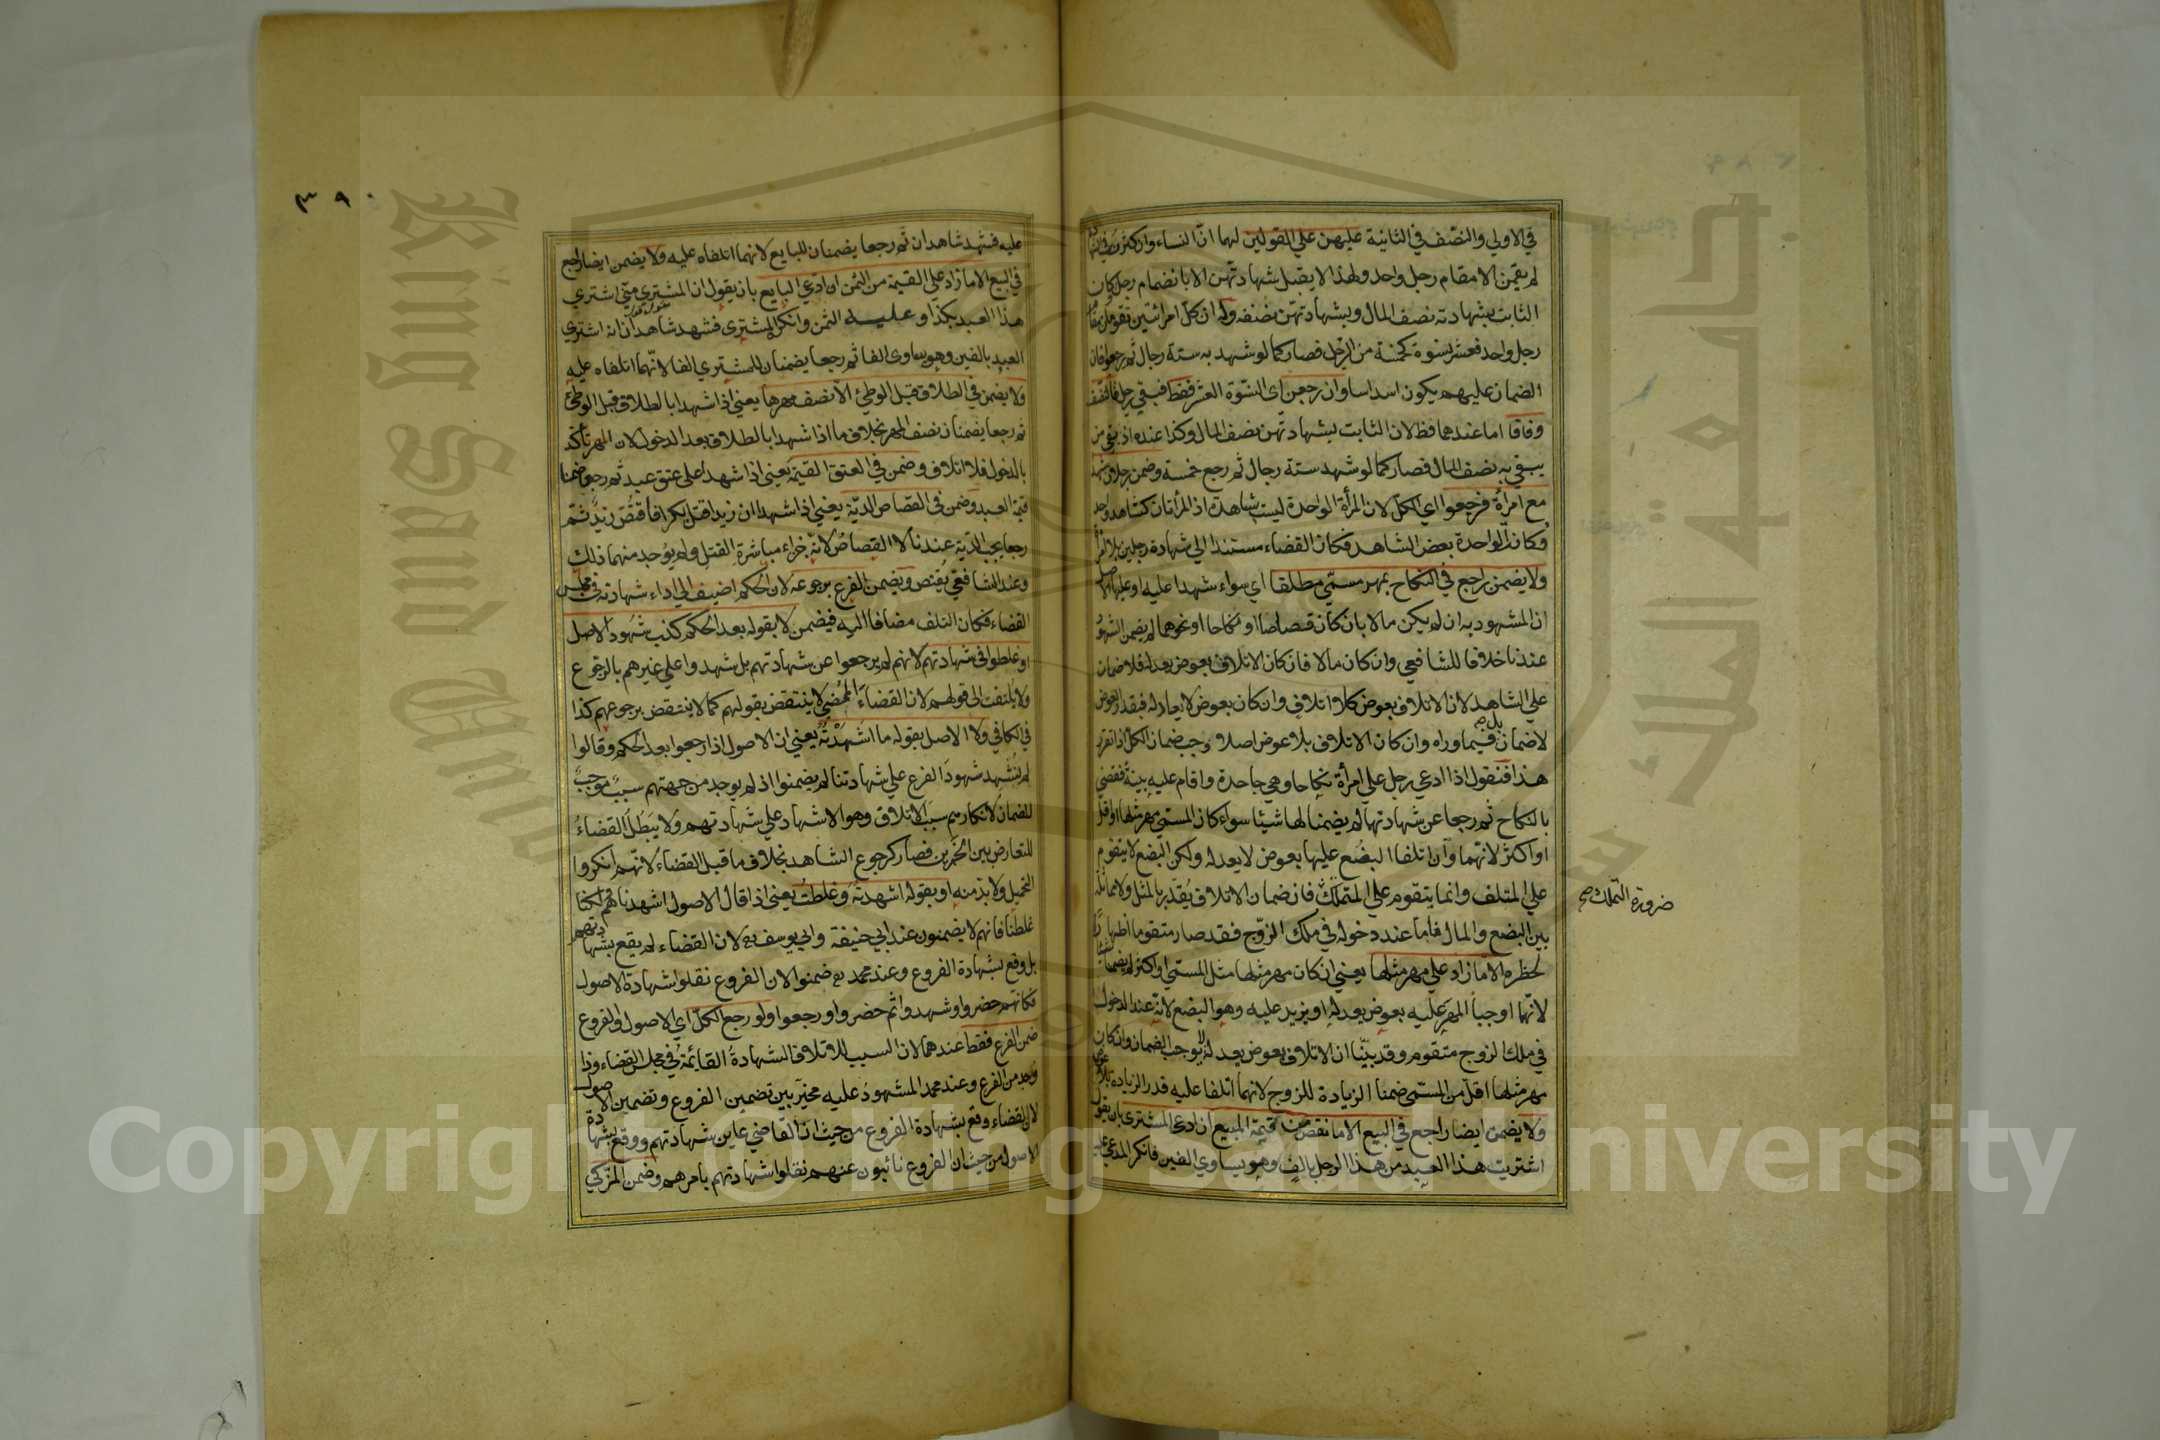 في الاولي والنصف في الثانية عليهن علي القولين لهما ان النساء وان كثرن
لم يقمن الا مقام رجل واحد ولهذا لا يقبل شهادتهن الا بانضمام رجل وكان
الثابت بشهادته نصف المال وبشهادتهن نصفه وله ان كل امراتين تقومان مقام
رجل واحد فعشر نسوة كخمسة من الرجل فصار كما لو شهد به ستة رجال ثم رجعوا فان
الضمان عليهم يكون اسداسا وان رجعن اي النسوة العشر فقط فبقي رجل فالنصف
وفاقا اما عندهما فظ لان الثابت بشهادتهن نصف المال وكذا عنده اذ بقي من
يبقي به نصف المال فصار كما لو شهد ستة رجال ثم رجع خمسة وضمن رجلان شهدا
مع امرأة فرجعوا اي الكل لان المرأة الواحدة ليست بشاهدة اذ المرأتان كشاهد واحد
فكانت الواحدة بعض الشاهد فكان القضاء مستندا الي شهادة رجلين بلا امرأة
ولا يضمن راجع في النكاح بمهر مسمي مطلقا اي سواء شهدا عليه او عليها الاصل
ان المشهود به ان لم يكن مالا بان كان قصاصا او نكاحا او نحوهما لم يضمن الشهود
عندنا خلافا للشافعي وان كان مالا فان كان الاتلاف بعوض يعادله فلا ضمان
علي الشاهد لان الاتلاف بعوض كلا اتلاف وان كان بعوض لا يعادله فبقدر العوض
لا ضمان بل فيما وراه وان كان الاتلاف بلا عوض اصلا وجب ضمان الكل اذا تقرر
هذا فنقول اذا ادعي رجل علي امرأة نكاحا وهي جاحدة واقام عليه بينة فقضي
بالنكاح ثم رجعا عن شهادتهما لم يضمنا لها شيئا سواء كان المسمي مهر مثلها او اقل
او اكثر لانهما وان اتلفا البضع عليها بعوض لا يعدله ولكن البضع لا يتقوم
علي المتلف وانما يتقوم علي المتملك فان ضمان الاتلاف يقدر بالمثل ولا مماثلة
ضرورة التملك صح
بين البضع والمال فاما عند دخوله في ملك الزوج فقد صار متقوما اظهارا
لخطره الا ما زاد علي مهر مثلها يعني ان كان مهر مثلها مثل المسمي او اكثر لم يضمنا شيئا
لانهما اوجبا المهر عليه بعوض يعدله او يزيد عليه وهو البضع لانه عند الدخول
في ملك الزوج متقوم وقد بينا ان الاتلاف بعوض يعدله لا يوجب الضمان وان كان
مهر مثلها اقل من المسمي ضمنا الزيادة للزوج لانهما اتلفا عليه قدر الزيادة بلا عوض
ولا يضمن ايضا راجع في البيع الا ما نقص من قيمة المبيع ان ادعي المشتري بان يقول
اشتريت هذا العبد من هذا الرجل بالف وهو يساوي الفين فانكر المدعي عليه
٣٩٠
عليه فشهد شاهدان ثم رجعا يضمنان للبايع لانهما اتلفاه عليه ولا يضمن ايضا راجع
في البيع الا ما زاد علي القيمة من الثمن ان ادعي البايع بان يقول ان المشتري مني اشتري
هذا العبد بكذا وعليه الثمن وانكر المشتري فشهد شاهدان انه اشتري
العبد بالفين وهو يساوي الفا ثم رجعا يضمنان للمشتري الفا لانهما اتلفاه عليه
ولا يضمن في الطلاق قبل الوطئ الا نصف مهرها يعني اذا شهدا بالطلاق قبل الوطئ
ثم رجعا يضمنان نصف المهر بخلاف ما اذا شهدا بالطلاق بعد الدخول لان المهر تأكد
بالدخول فلا اتلاف وضمن في العتق القيمة يعني اذا شهدا علي عتق عبد ثم رجعا ضمنا
قيمة العبد وضمن في القصاص الدية يعني اذا شهدا ان زيدا قتل بكرا فاقتص زيد ثم
رجعا يجب الدية عندنا لا القصاص لانه جزاء مباشرة القتل ولم يوجد منهما ذلك
وعند الشافعي يقتص ويضمن الفرع برجوعه لان الحكم اضيف الي اداء شهادته في مجلس
القضاء فكان التلف مضافا اليه فيضمن لا بقوله بعد الحكم كذب شهود الاصل
او غلطوا في شهادتهم لانهم لم يرجعوا عن شهادتهم بل شهدوا علي غيرهم بالرجوع
ولا يلتفت الي قولهم لان القضاء الممضي لا ينتقض بقولهم كما لا ينتقض برجوعهم كذا
في الكافي ولا الاصل بقوله ما اشهدته يعني ان الاصول اذا رجعوا بعد الحكم وقالوا
لم نشهد شهود الفرع علي شهادتنا لم يضمنوا اذ لم يوجد من جهتهم سبب موجب
للضمان لانكارهم سبب الاتلاف وهو الاشهاد علي شهادتهم ولا يبطل القضاء
للتعارض بين الخبرين فصار كرجوع الشاهد بخلاف ما قبل القضاء لانهم انكروا
التحميل ولا بد منه او بقوله اشهدته وغلطت يعني اذا قال الاصول اشهدناهم لكنا
غلطنا فانهم لا يضمنون عند ابي حنيفة وابي يوسف رح لان القضاء لم يقع بشهادتهم
بل وقع بشهادة الفروع وعند محمد رح ضمنوا لان الفروع نقلوا شهادة الاصول
فكانهم حضروا وشهدوا ثم حضروا ورجعوا ولو رجع الكل اي الاصول والفروع
ضمن الفرع فقط عندهما لان السبب للاتلاف الشهادة القائمة في مجلس القضاء وذا
وجد من الفرع وعند محمد المشهود عليه مخير بين تضمين الفروع وتضمين الاصول
لان القضاء وقع بشهادة الفروع من حيث ان القاضي عاين شهادتهم ووقع بشهادة
الاصول من حيث ان الفروع نائبون عنهم نقلوا شهادتهم بامرهم وضمن المزكي
King Saud University
جامعة الملك سعود
Copyright © King Saud University